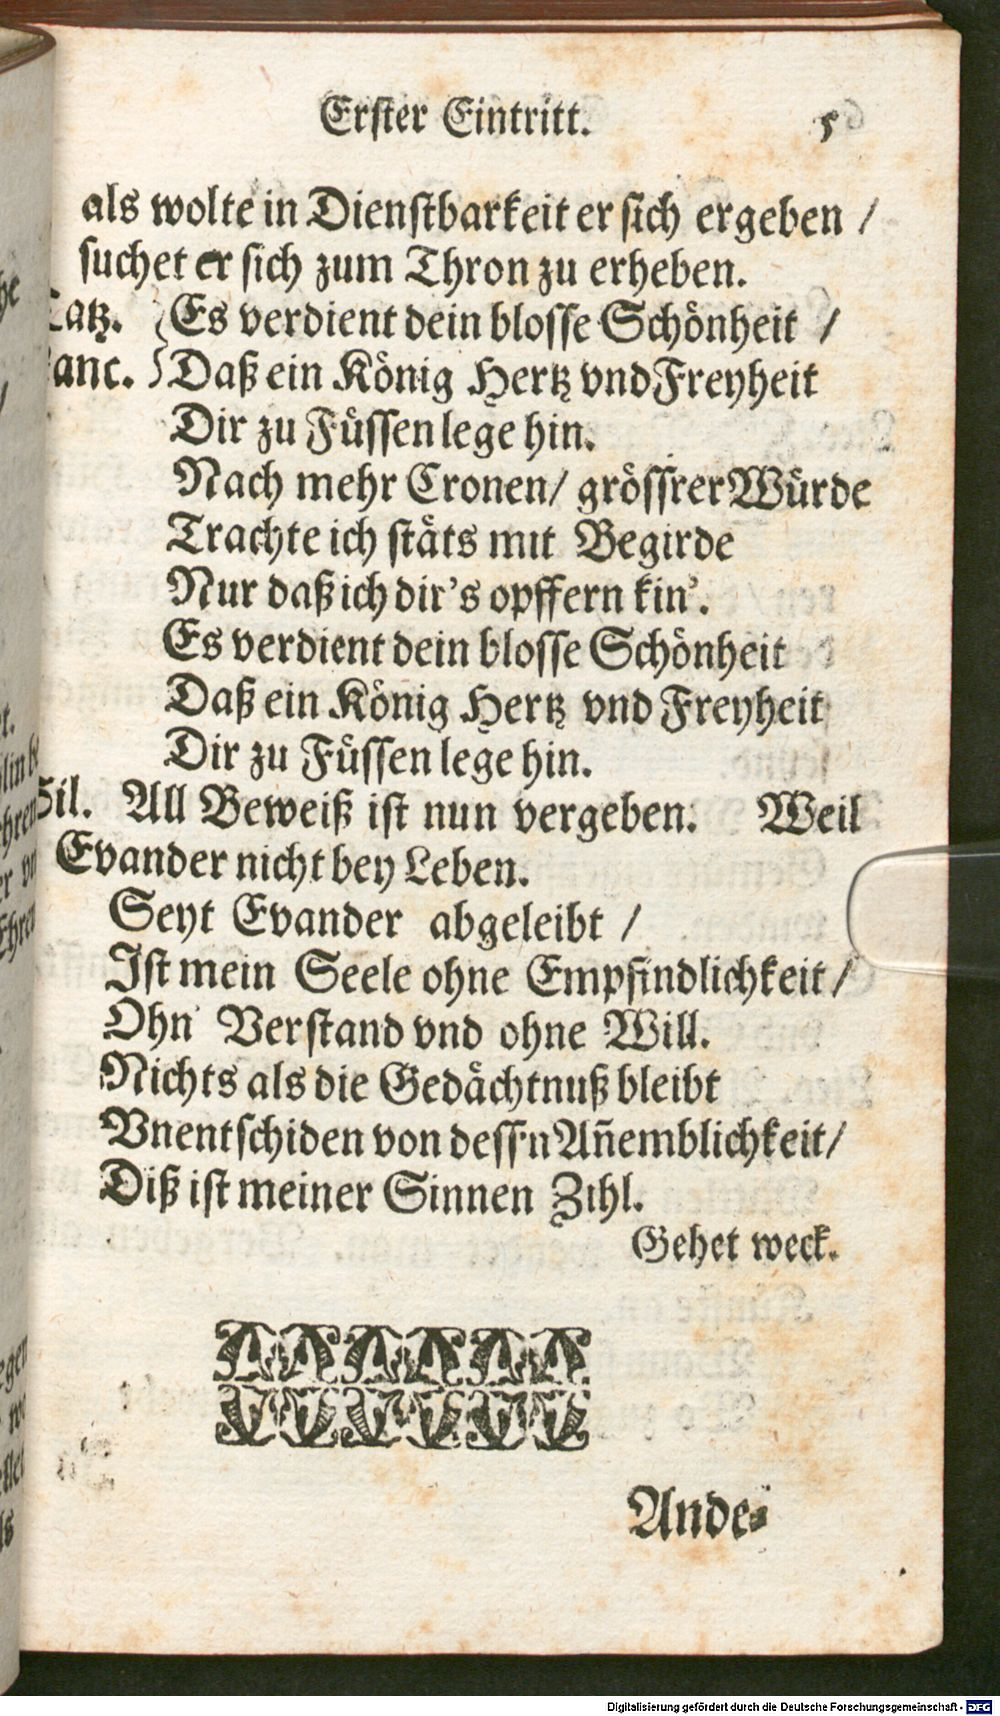 Erster Eintritt. 5
als wolte in Dienstbarkeit er sich ergeben /
suchet er sich zum Thron zu erheben.
Latz. Es verdient dein blosse Schönheit /
anc. Daß ein König Hertz vnd Freyheit
Dir zu Füssen lege hin.
Nach mehr Cronen / grössrer Würde
Trachte ich stäts mit Begirde
Nur daß ich dir's opffern kin'.
Es verdient dein blosse Schönheit
Daß ein König Hertz vnd Freyheit
Dir zu Füssen lege hin.
Sil. All Beweiß ist nun vergeben. Weil
Evander nicht bey Leben.
Seyt Evander abgeleibt /
Ist mein Seele ohne Empfindlichkeit /
Ohn' Verstand vnd ohne Will.
Nichts als die Gedächtnuß bleibt
Vnentschiden von dess'n Añemblichkeit /
Diß ist meiner Sinnen Zihl.
Gehet weck.
Ande-
Digitalisierung gefördert durch die Deutsche Forschungsgemeinschaft - DFG